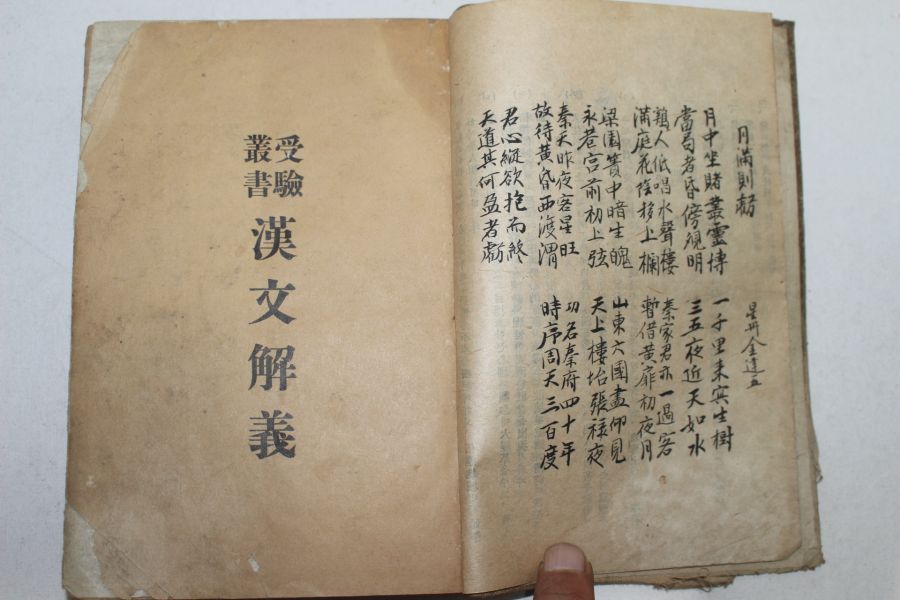 月滿則虧
星州金達五
月中坐賭叢靈博 一千里來寅生樹
當局者昏傍觀明 三五夜近天如水
鷄人低唱水聲樓 秦家君亦一過客
滿庭花陰移上欄 暫借黃扉初夜月
梁園簀中暗生魄 山東六國盡仰見
永巷宮前初上弦 天上樓坮張祿夜
秦天昨夜客星旺 功名秦府四十年
故待黃昏西渡渭 時序周天三百度
君心縱欲抱而終
天道其何盈者虧
受驗
叢書
漢文解義